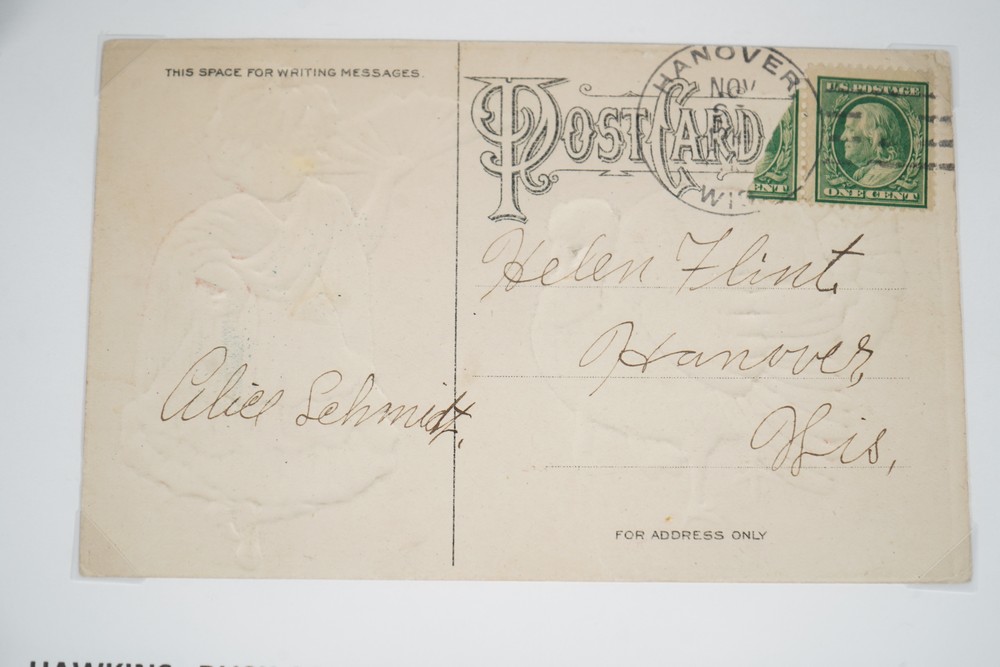 THIS SPACE FOR WRITING MESSAGES.
POST CARD
HANOVER
NOV
WIS
CENT
U.S. POSTAGE
ONE CENT
Helen Flint.
Hanover,
Wis,
Alice Schmidt.
FOR ADDRESS ONLY
HAWKINS